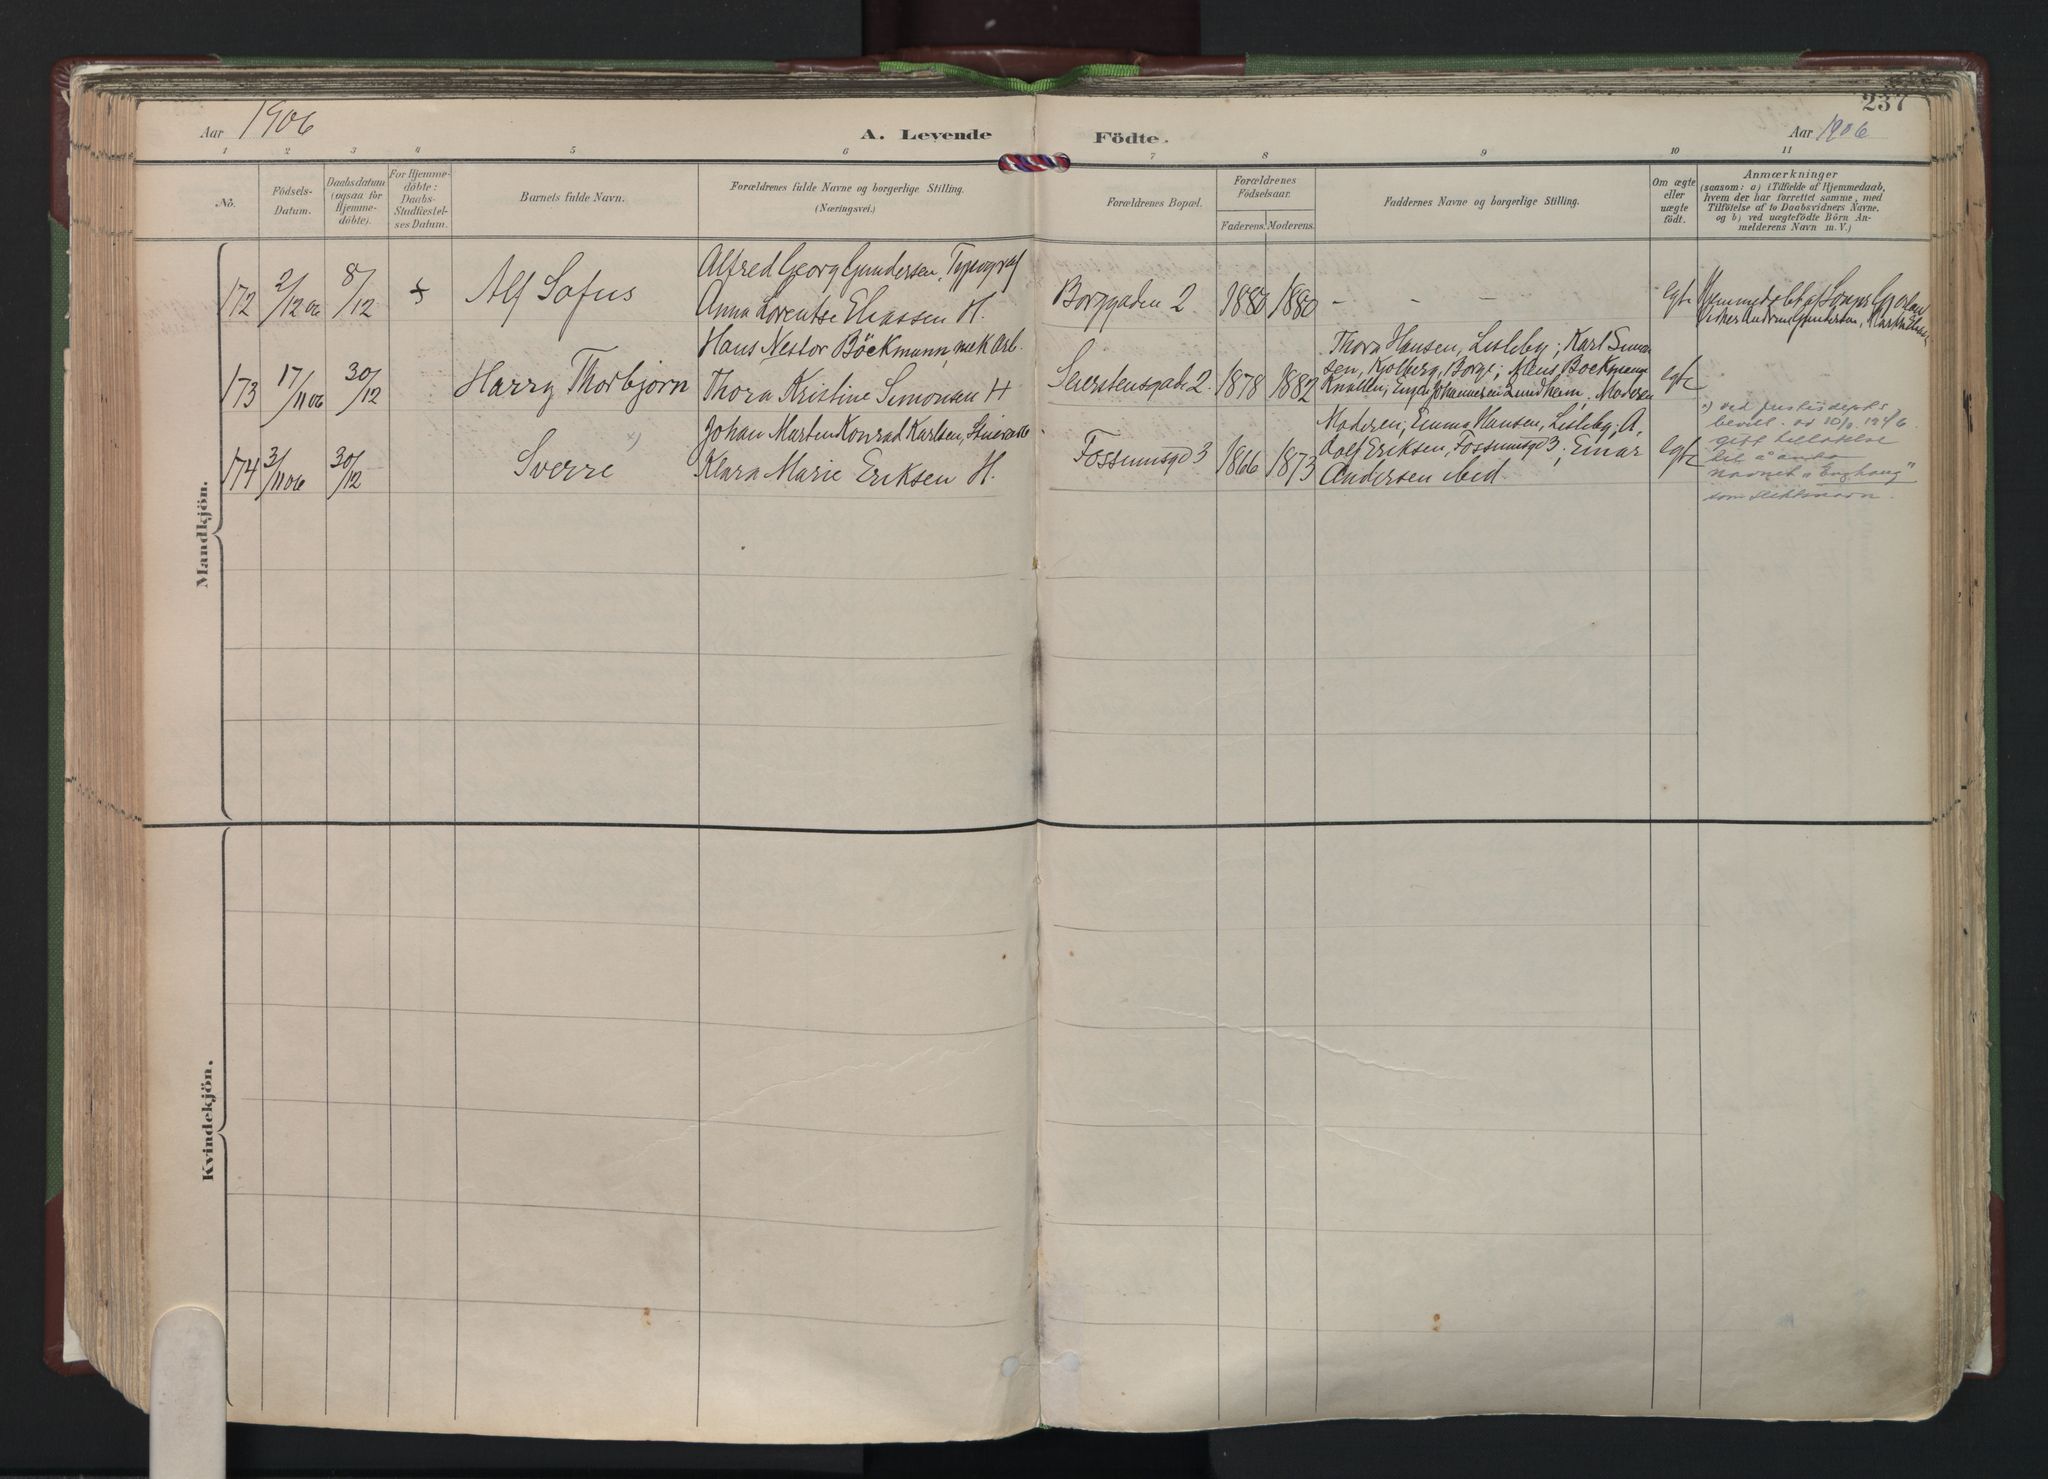 237
Aar 1906 A. Levende Födte. Aar 1906
1 2 3 4 5 6 7 8 9 10 11
No. Födsels-Datum. Daabsdatum (ogsaa for Hjemmedöbte). For Hjemmedöbte: Daabs-Stadfæstelses Datum. Barnets fulde Navn. Forældrenes fulde Navne og borgerlige Stilling. (Næringsvei.) Forældrenes Bopæl. Forældrenes Födselsaar. Faderens. Moderens. Faddernes Navne og borgerlige Stilling. Om ægte eller uægte födt. Anmærkninger (saasom: a) i Tilfælde af Hjemmedaab, hvem der har forrettet samme, med Tilföielse af to Daabsvidners Navne, og b) ved uægtefödte Börn Anmelderens Navn m. V.)
Mandkjön.
Alfred Georg Gundersen, Typograf
172 2/12 06 8/12 Alf Sofus Anna Lorentse Eliassen H. Borggaden 2 1880 1880 - - - - egte
Hans Nestor Böckmann, mek Arb.
173 17/11 06 30/12 Harry Thorbjørn Thora Kristine Simonsen H Seierstensgade 2 1878 1882 egte
Thora Hansen, Lisleby; Karl Simon
sen, Kjølberg, Borge; Hans Bockmann
Knatten, Johannesen Lundheim. Moderen
Johan Marten Konrad Karlsen,
174 3/11 06 30/12 Sverre x) Klara Marie Eriksen H. Fossumsgd 3 1866 1873 egte
Moderen; Emma Hansen, Lisleby; A
dolf Eriksen, Fossumsgd 3; Einar
Andersen ibid.
x) ved justisdepts
bevill. av
gitt tillatelse
til å anta
navnet "Enghaug"
som slektsnavn.
Kvindekjön.